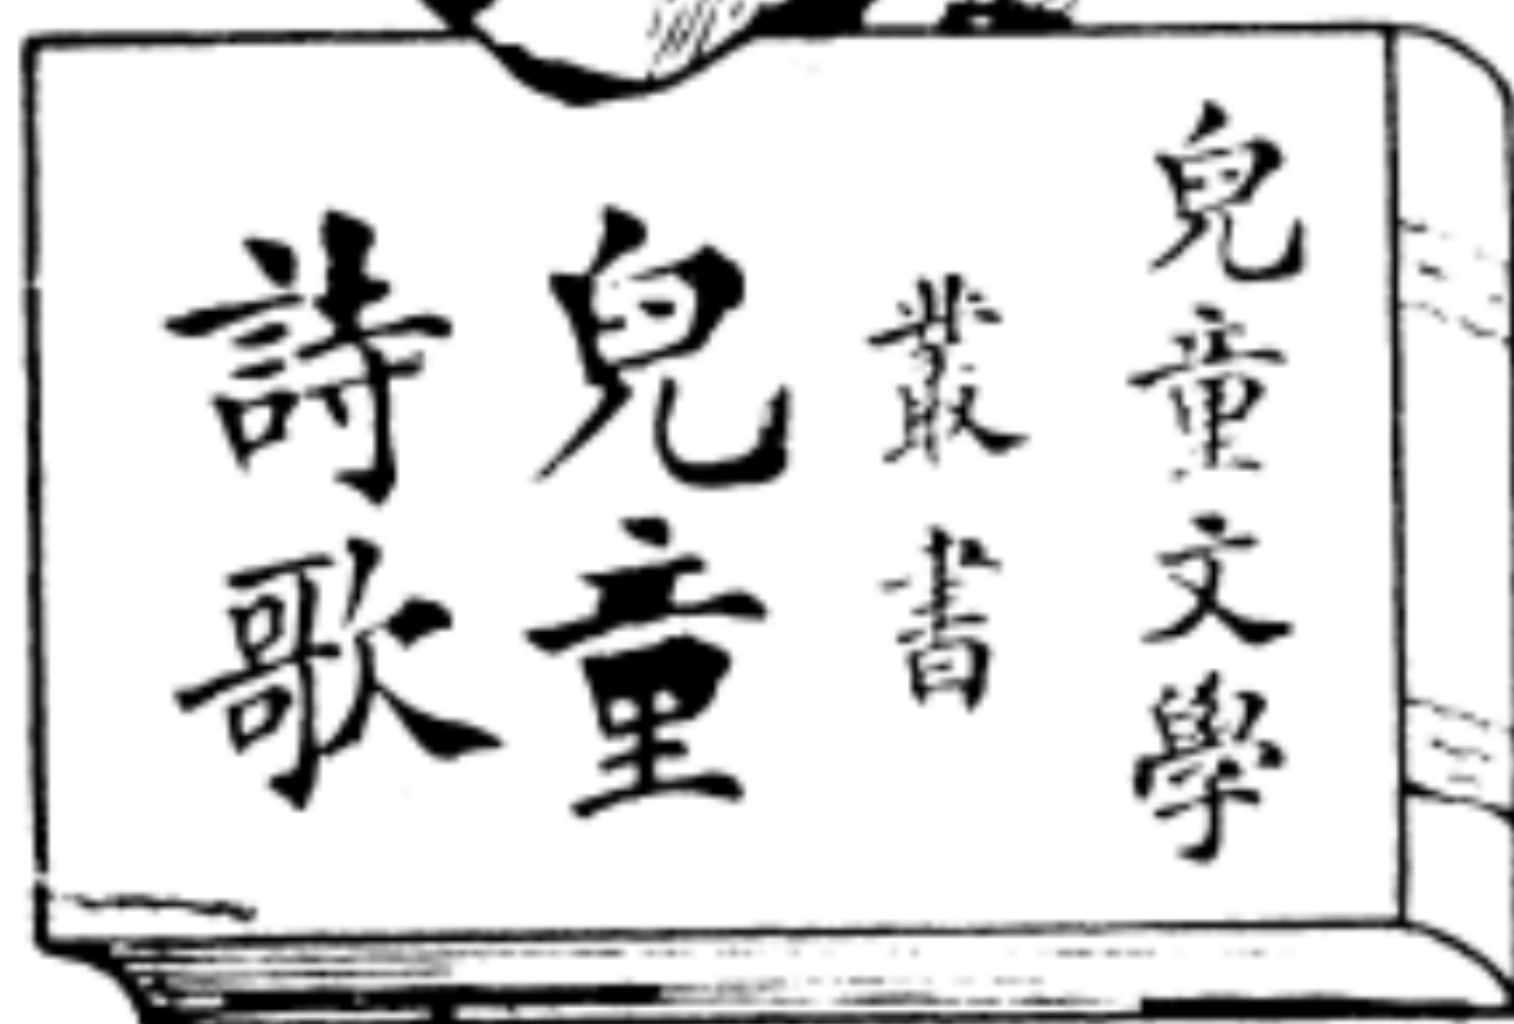 兒童文學
叢書
兒童
詩歌